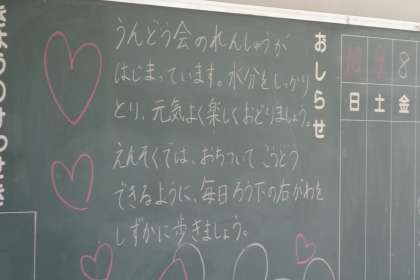 おしらせ
うんどう会のれんしゅうが
はじまっています。水分をしっかり
とり、元気よく楽しくおどりましょう。
えんそくでは、おちついてこうどう
できるように、毎日ろう下の右がわを
しずかに歩きましょう。
日 土 金
10 9 8